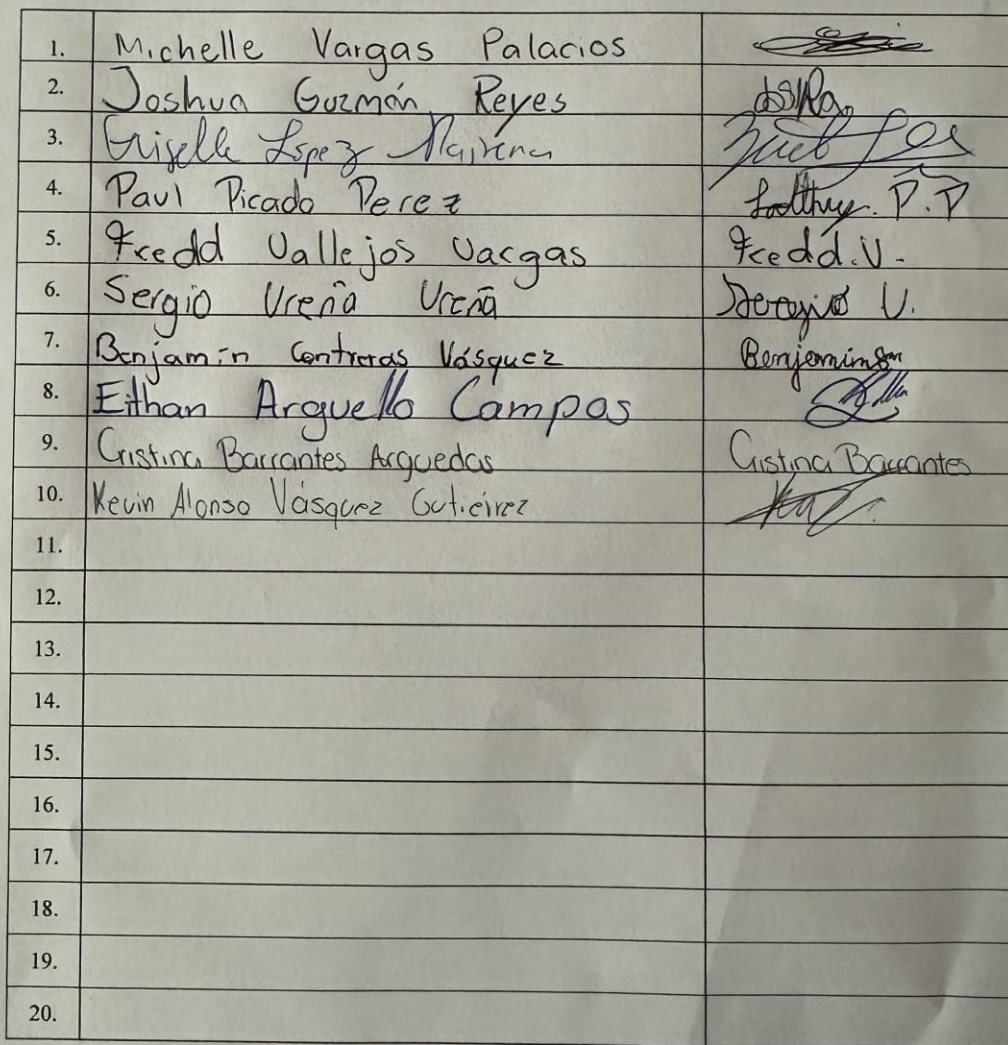 1. Michelle Vargas Palacios
2. Joshua Guzmán Reyes
3. Griselle Lopez Mairena
4. Paul Picado Perez P.P
5. Fredd Vallejos Vargas Fredd.V-
6. Sergio Ureña Ureña Sergio U.
7. Benjamín Contreras Vásquez Benjamin
8. Eithan Arguello Campos
9. Cristina Barrantes Arguedas Cristina Barrantes
10. Kevin Alonso Vásquez Gutieirez
11.
12.
13.
14.
15.
16.
17.
18.
19.
20.